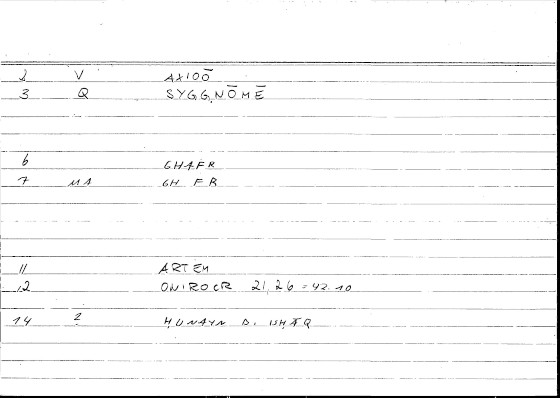 2 V AXIOŌ
3 Q SYGGNŌMĒ
6 GHAFR
7 MA GH FR
11 ARTEM
12 ONIROCR 21,26 = 42.10
14 2 HUNAYN B. ISHĀQ